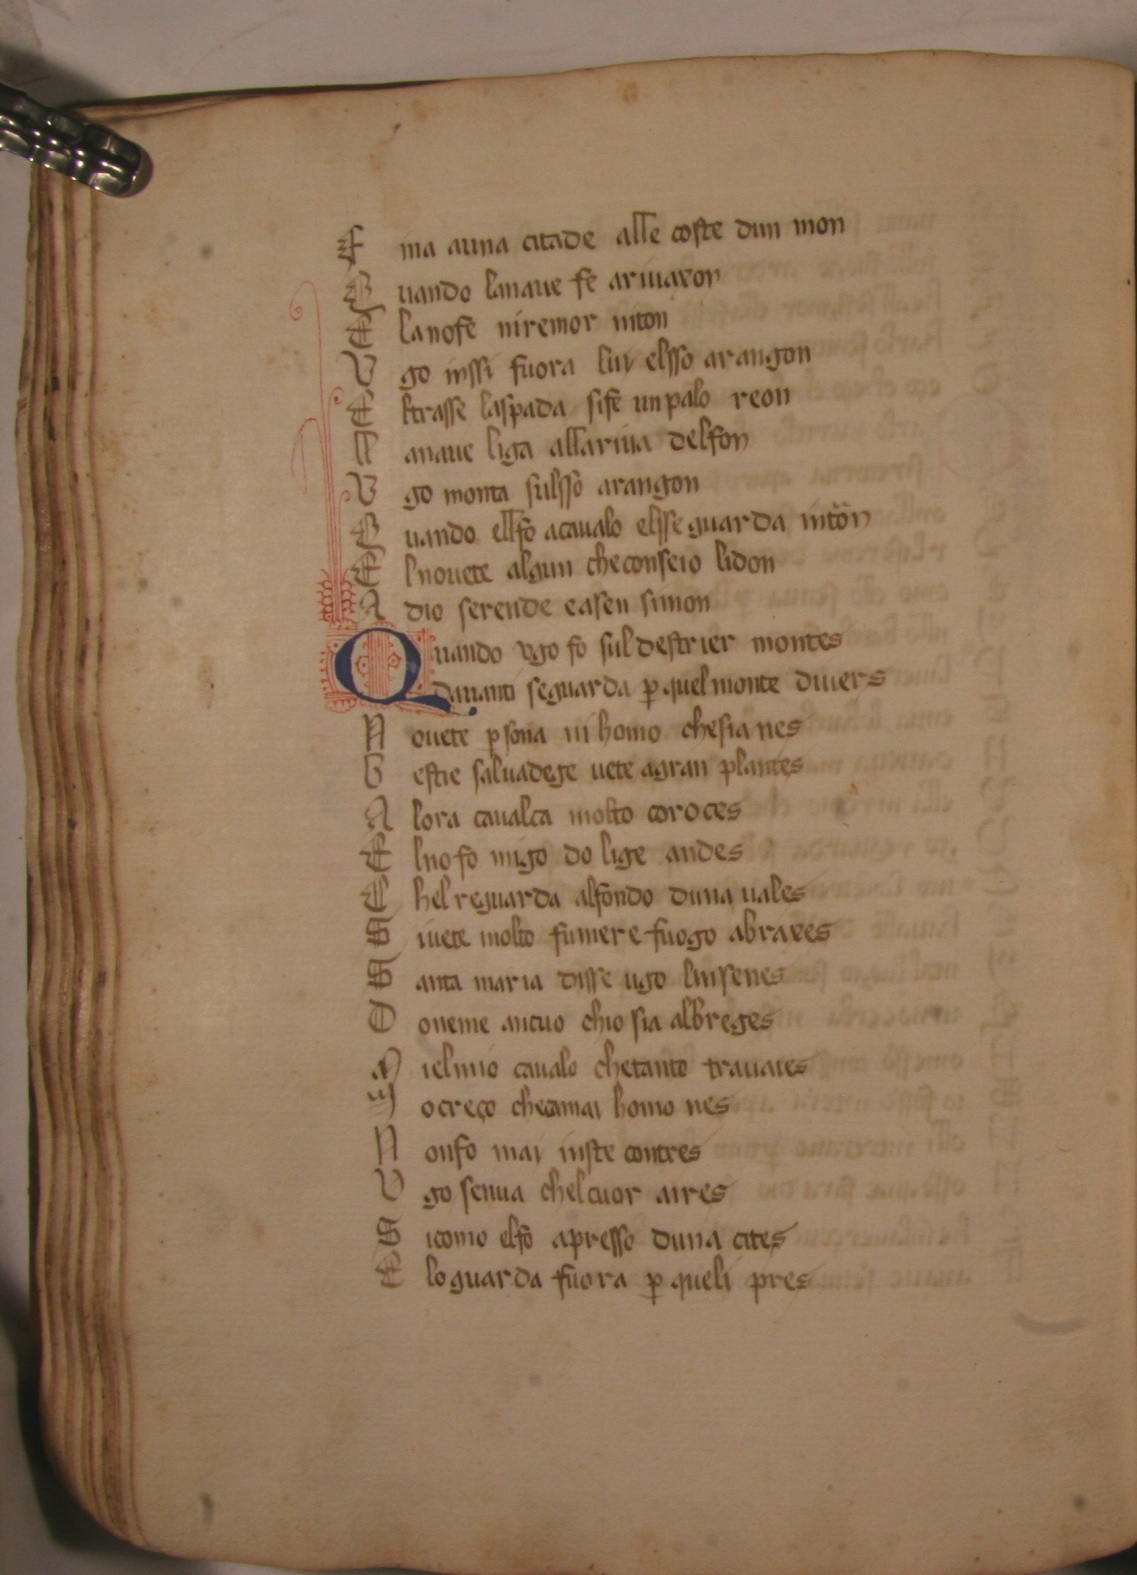 F ina auna citade alle coste dun mon
Q uando lanaue fe ariuaxon
E lanofe niremor niton
V go inssi fuora luy elsso arangon
E ltrasse laspada sife un palo reon
L anaue liga allariua delfon
V go monta sulsso arangon
Q uando ellfo acaualo elsse guarda intorn
E lnouete algun checonseio lidon
A dio serende easen simon
Quando vgo fo sul destrier montes
Dauanti seguarda p quel monte diuers
N ouete psona ni homo chesia nes
B estie saluadege uete agran plantes
A lora caualca molto coroces
E lno fo migo do lige andes
C hel reguarda alfondo duna uales
S iuete molto fumer e fuogo abraxes
S anta maria disse ugo luisenes
D oueme ancuo chio sia albreges
M ielmio caualo chetanto trauaies
M ocreço checamai homo nes
N onfo mai inste contres
V go senua chelcuor aires
S icomo elfo apresso duna cites
E lo guarda fuora p queli pres